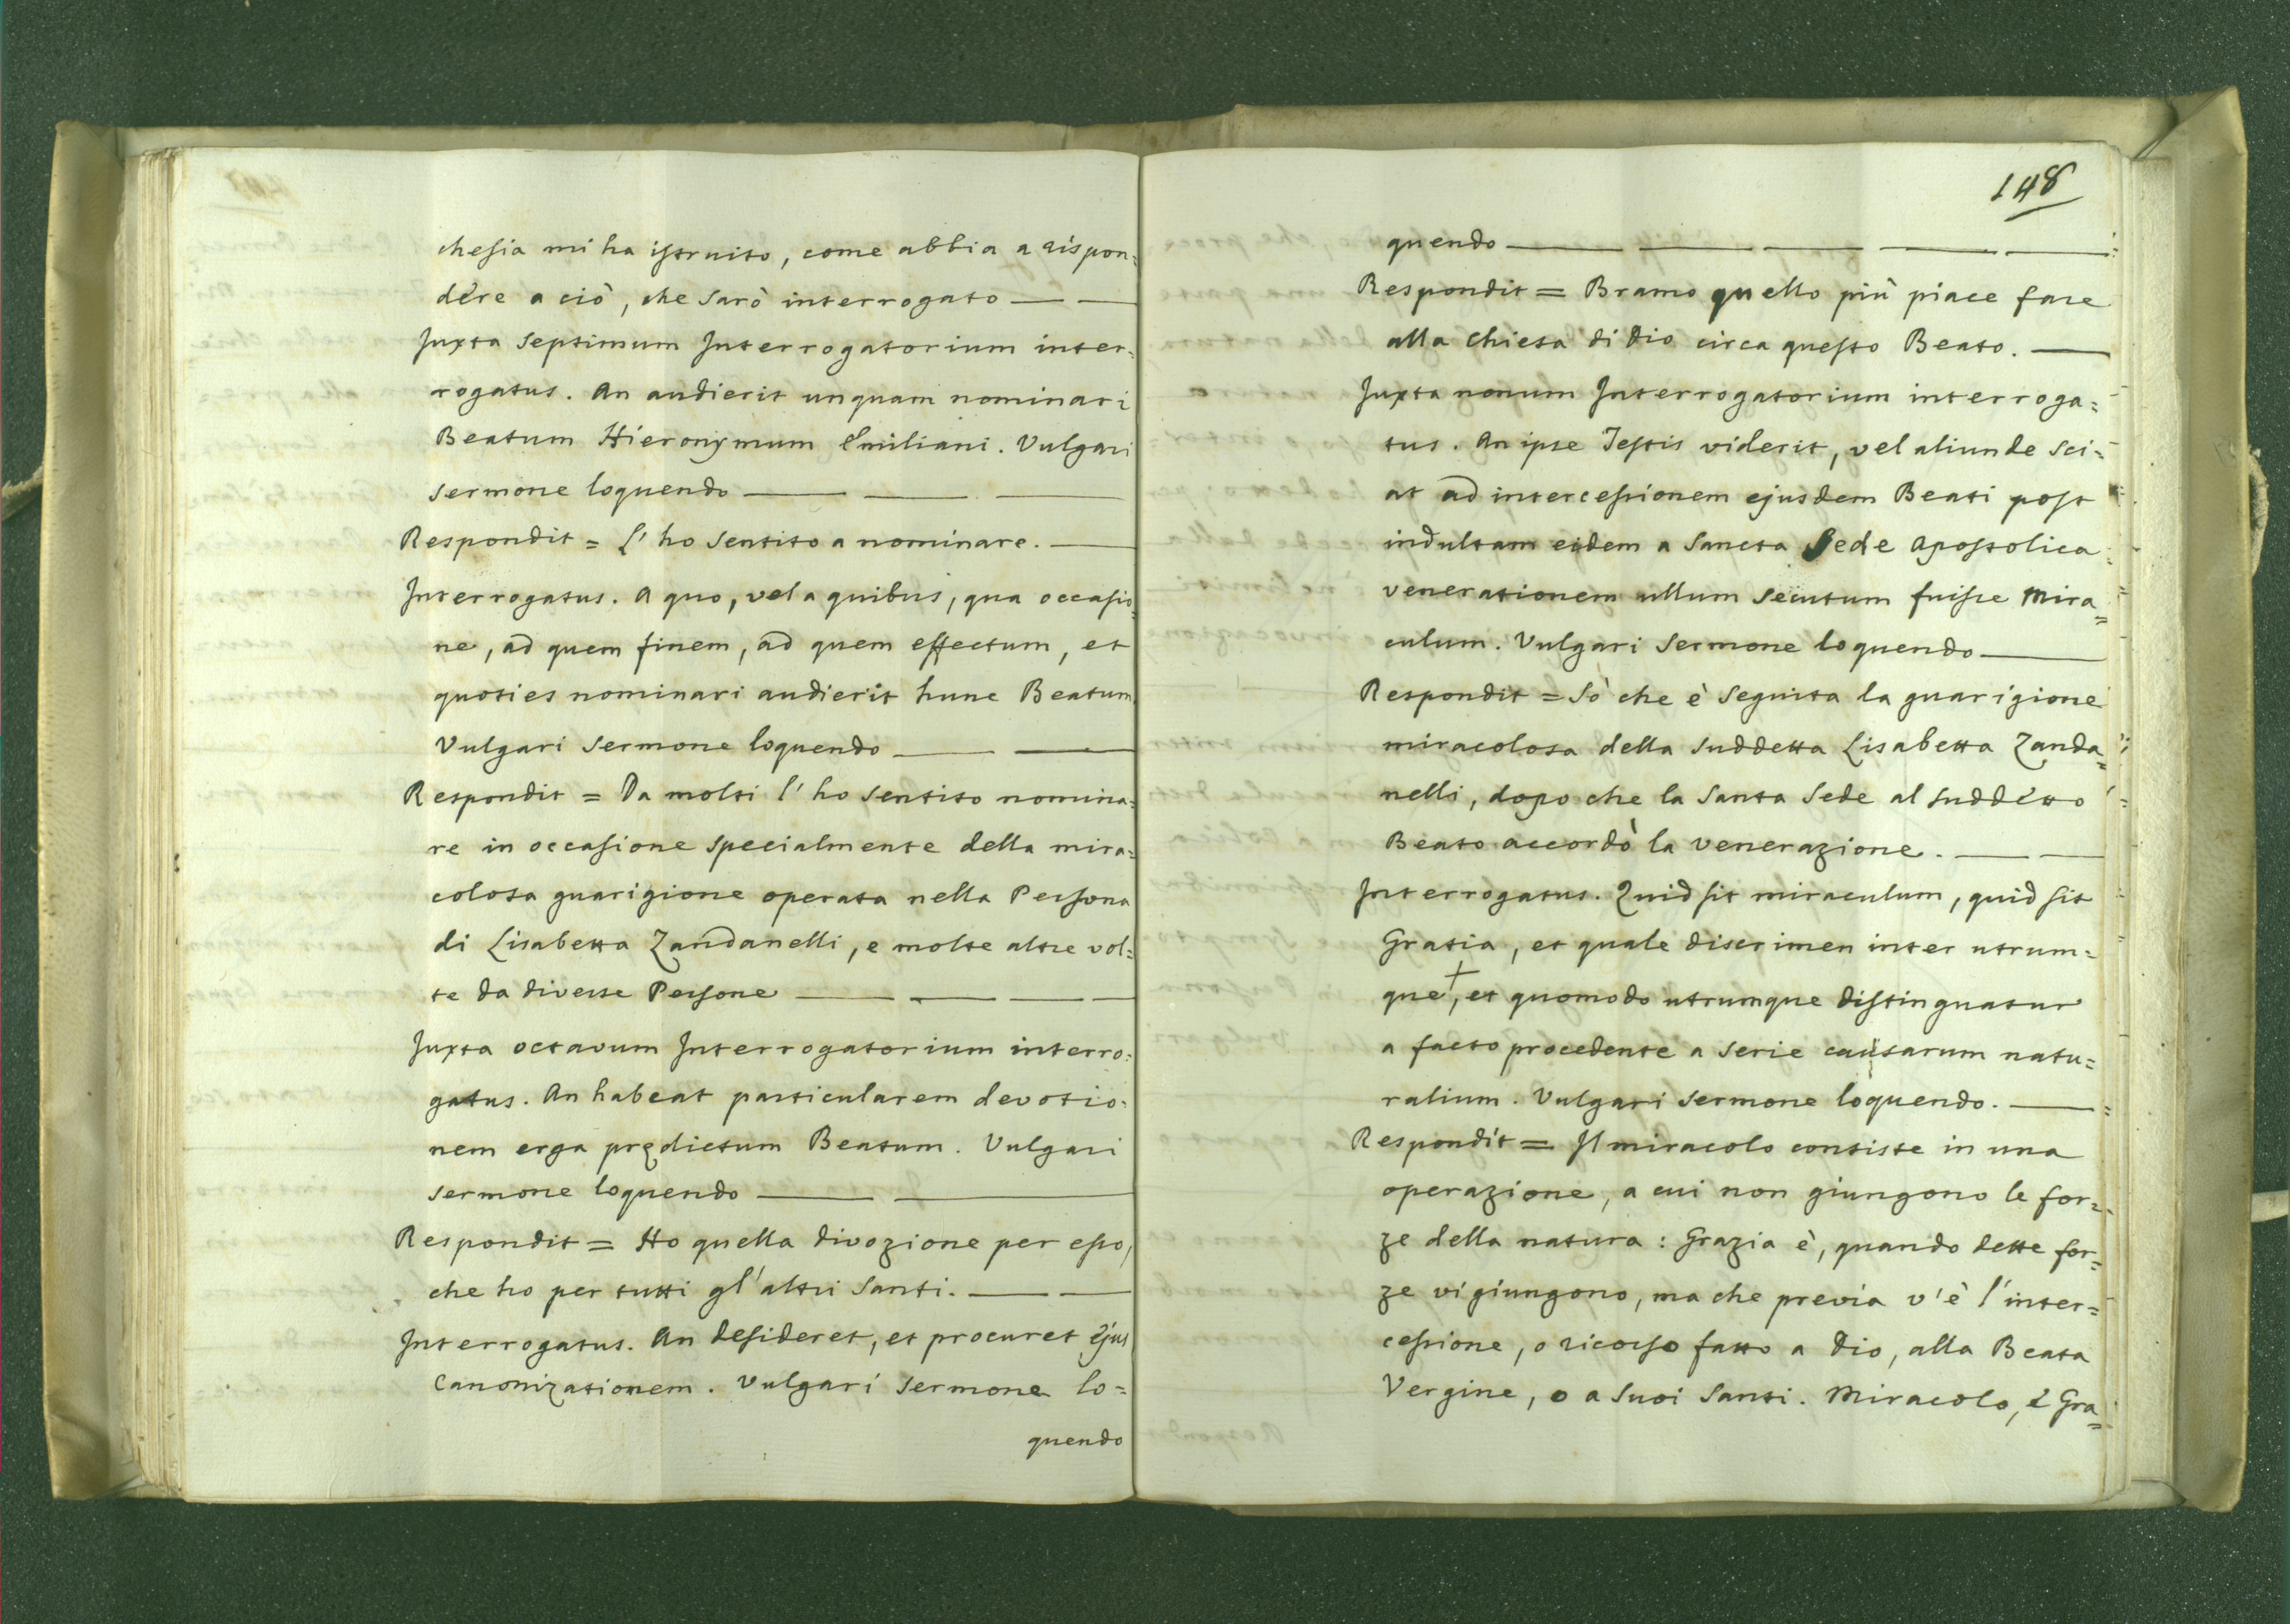 chesia mi ha istruito, come abbia a rispon=
dere a ciò, che sarò interrogato
Juxta septimum Interrogatorium inter=
rogatus. An audierit unquam nominari
Beatum Hieronymum Emiliani. Vulgari
sermone loquendo
Respondit = L'ho sentito a nominare.
Interrogatus. A quo, vel a quibus, qua occasio=
ne, ad quem finem, ad quem effectum, et
quoties nominari audierit hunc Beatum
Vulgari sermone loquendo
Respondit = Da molti l'ho sentito nomina=
re in occasione specialmente della mira=
colosa guarigione operata nella Persona
di Lisabetta Zandanelli, e molte altre vol=
te da diverse Persone
Juxta octavum Interrogatorium interro=
gatus. An habeat particularem devotio=
nem erga prędictum Beatum. Vulgari
sermone loquendo
Respondit = Ho quella divozione per esso,
che ho per tutti gl'altri Santi.
Interrogatus. An desideret, et procuret ejus
Canonizationem. Vulgari sermone lo=
quendo
148
quendo
Respondit = Bramo quello più piace fare
alla Chiesa di Dio circa questo Beato.
Juxta nonum Interrogatorium interroga=
tus. An ipse Testis viderit, vel aliunde sci=
at ad intercessionem ejusdem Beati post
indultam eidem a Sancta Sede Apostolica
venerationem ullum secutum fuisse Mira=
culum. Vulgari sermone loquendo
Respondit = Sò che è seguita la guarigione
miracolosa della suddetta Lisabetta Zanda=
nelli, dopo che la Santa Sede al suddetto
Beato accordò la venerazione.
Interrogatus. Quid sit miraculum, quid sit
Gratia, et quale discrimen inter utrum=
que +, et quomodo utrumque distinguatur
a facto procedente a serie causarum natu=
ralium. Vulgari sermone loquendo.
Respondit = Il miracolo consiste in una
operazione, a cui non giungono le for=
ze della natura : Grazia è, quando dette for=
ze vi giungono, ma che previa v'è l'inter=
cessione, o ricorso fatto a Dio, alla Beata
Vergine, o a suoi Santi. Miracolo, e Gra=